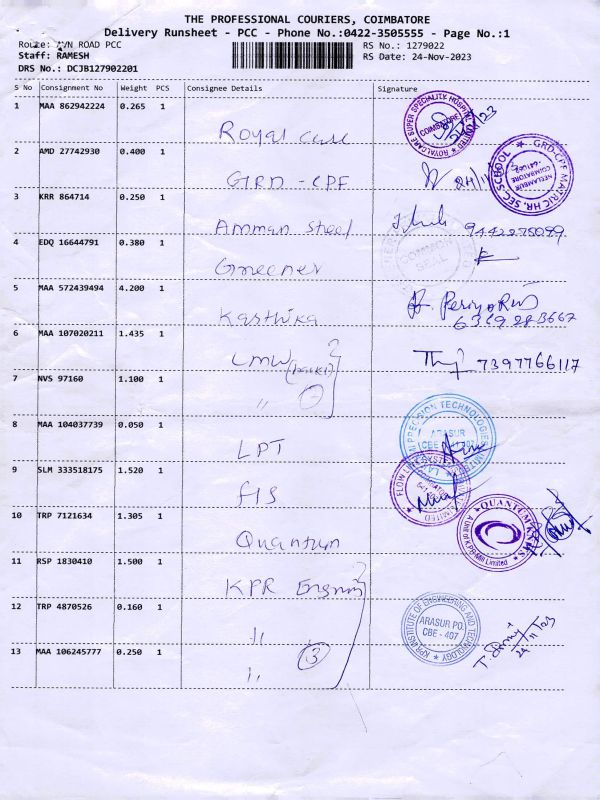 THE PROFESSIONAL COURIERS, COIMBATORE
Delivery Runsheet - PCC - Phone No.:0422-3505555 - Page No.:1
Route: AVN ROAD PCC
RS No.: 1279022
Staff: RAMESH
RS Date: 24-Nov-2023
DRS No.: DCJB127902201
S No Consignment No Weight PCS Consignee Details Signature
1 MAA 862942224 0.265 1
Royal care
ROYALCARE SUPER SPECIALITY HOSPITAL LIMITED
COIMBATORE
2 AMD 27742930 0.400 1
GRD - CPF
GRD-CPF MATRIC HR. SEC. SCHOOL
NEELAMBUR
COIMBATORE
3 KRR 864714 0.250 1
Amman steel
4 EDQ 16644791 0.380 1
Greener
COMMON
SEAL
5 MAA 572439494 4.200 1
Karthika
6 MAA 107020211 1.435 1
LMW
7397766117
7 NVS 97160 1.100 1
" 2
8 MAA 104037739 0.050 1
LPT
PRECISION TECHNOLOGIES
ARASUR
9 SLM 333518175 1.520 1
FIS
10 TRP 7121634 1.305 1
Quantum
QUANTUM KNITS
A Unit of KPR Mill Limited
11 RSP 1830410 1.500 1
KPR
12 TRP 4870526 0.160 1
"
KPR INSTITUTE OF ENGINEERING AND TECHNOLOGY
ARASUR PO.
CBE - 407
13 MAA 106245777 0.250 1
" 3